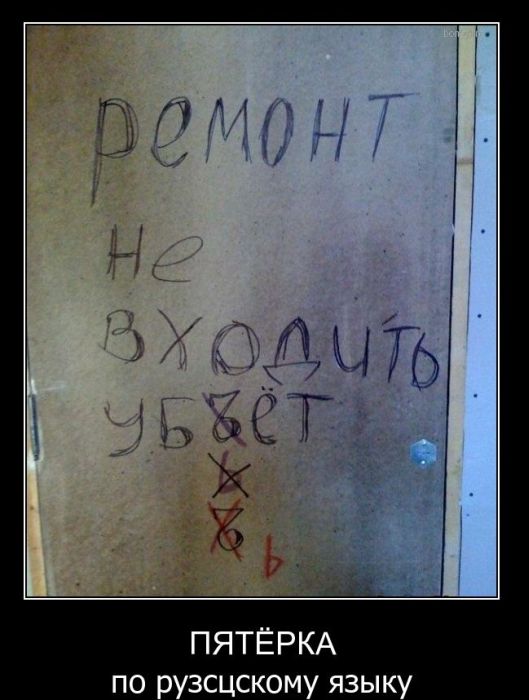 ремонт
не
входить
убъёт
ь
ъ
ь
ПЯТЁРКА
по рузсцскому языку